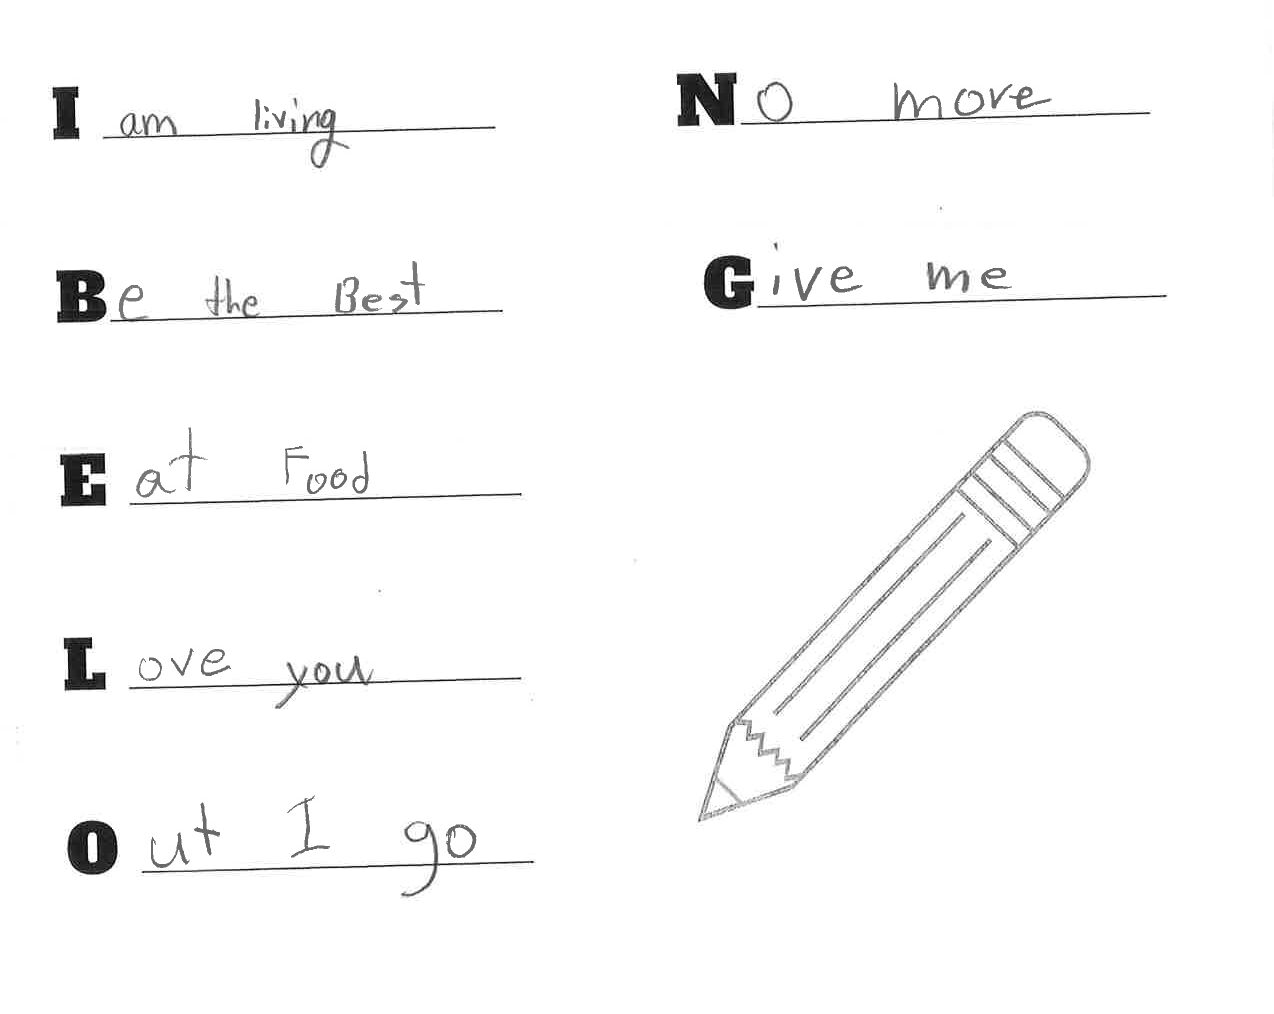 I am living
Be the Best
Eat Food
Love you
Out I go
No more
Give me